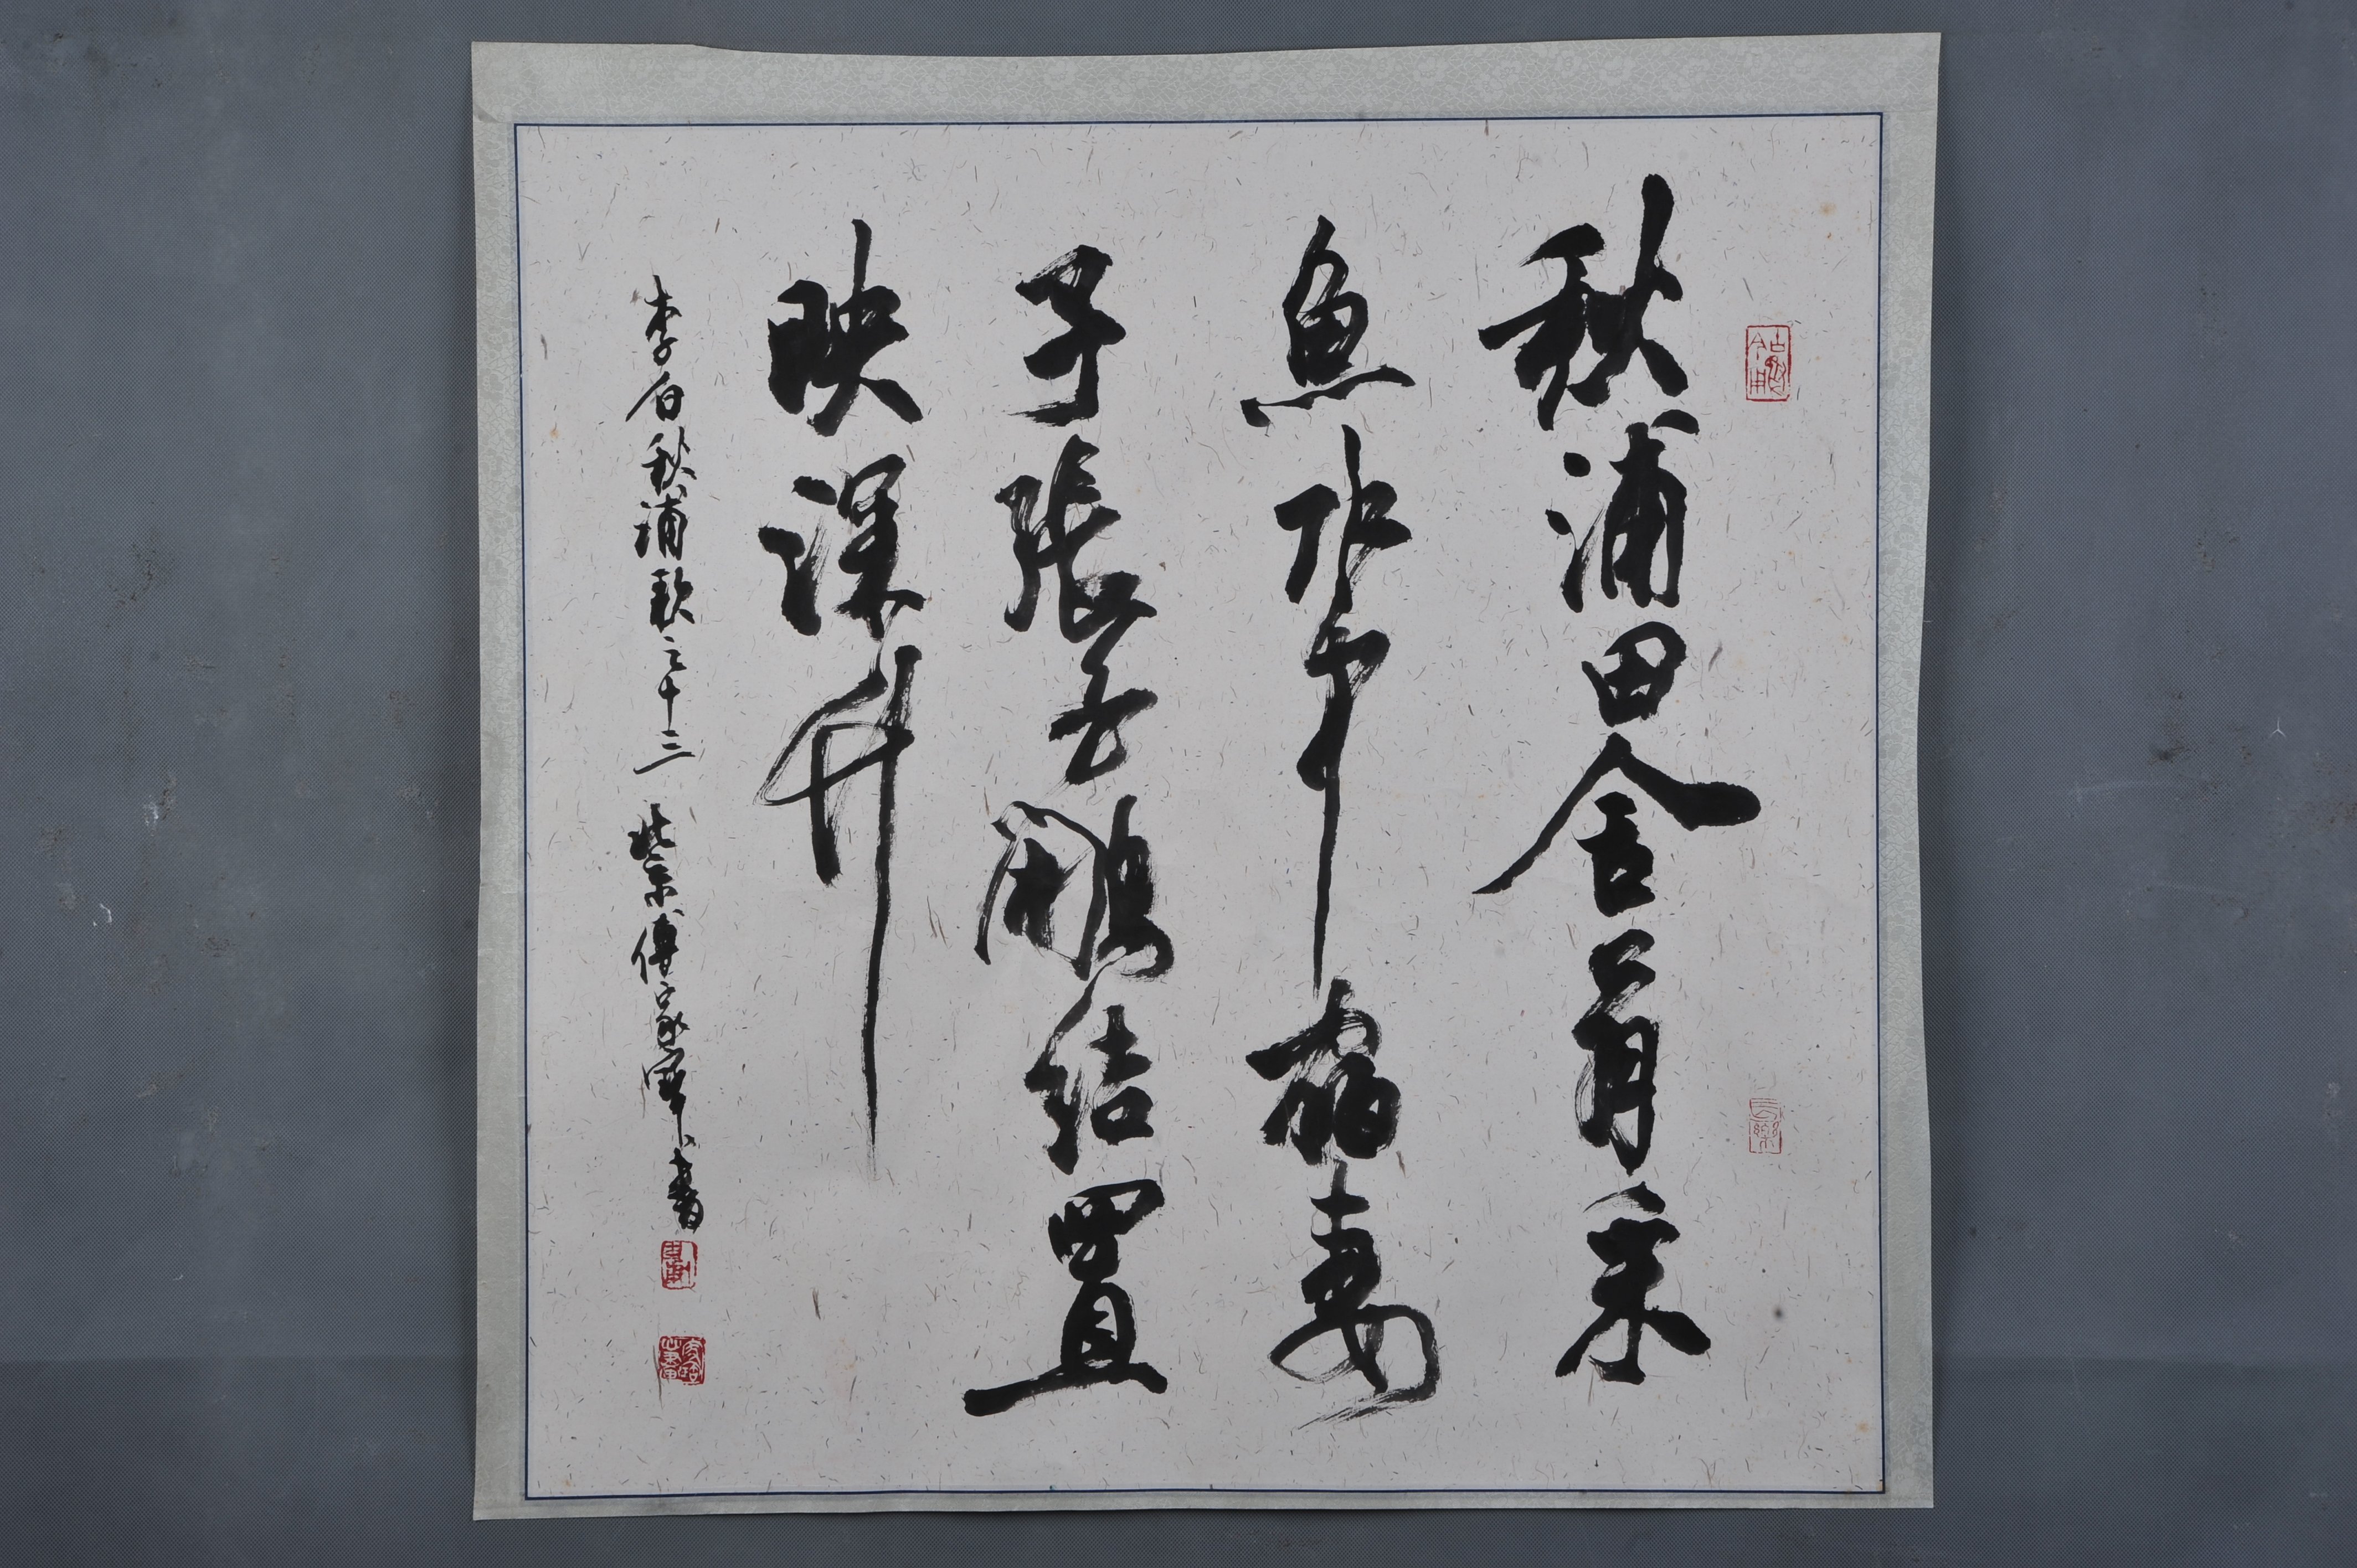 秋浦田舍翁采
魚水中宿妻
子張白鷴結罝
映深竹
李白秋浦歌之十三 北京傅家書
長樂